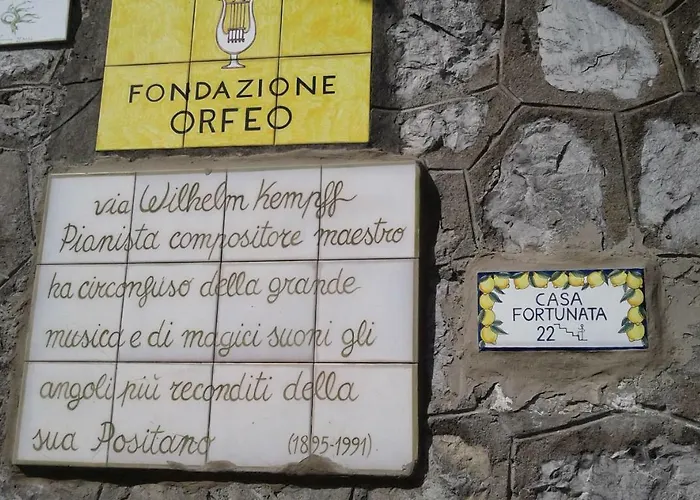 FONDAZIONE
ORFEO
via Wilhelm Kempff
Pianista compositore maestro
ha circonfuso della grande
musica e di magici suoni gli
angoli più reconditi della
sua Positano (1895-1991)
CASA
FORTUNATA
22